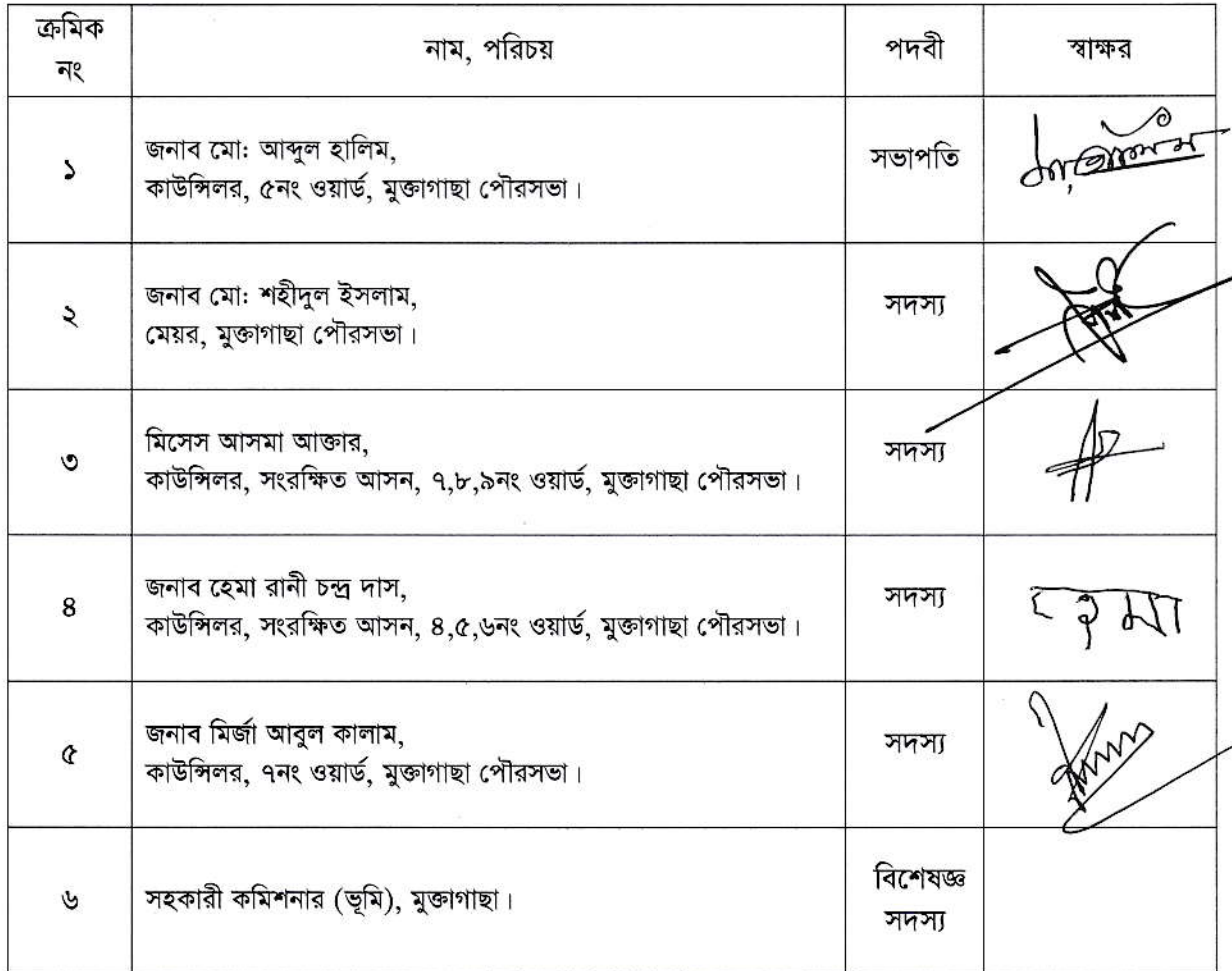 ক্রমিক নং নাম, পরিচয় পদবী স্বাক্ষর
১ জনাব মো: আব্দুল হালিম, সভাপতি
কাউন্সিলর, ৫নং ওয়ার্ড, মুক্তাগাছা পৌরসভা।
২ জনাব মো: শহীদুল ইসলাম, সদস্য
মেয়র, মুক্তাগাছা পৌরসভা।
৩ মিসেস আসমা আক্তার, সদস্য
কাউন্সিলর, সংরক্ষিত আসন, ৭,৮,৯নং ওয়ার্ড, মুক্তাগাছা পৌরসভা।
৪ জনাব হেমা রানী চন্দ্র দাস, সদস্য হেমা
কাউন্সিলর, সংরক্ষিত আসন, ৪,৫,৬নং ওয়ার্ড, মুক্তাগাছা পৌরসভা।
৫ জনাব মির্জা আবুল কালাম, সদস্য
কাউন্সিলর, ৭নং ওয়ার্ড, মুক্তাগাছা পৌরসভা।
৬ সহকারী কমিশনার (ভূমি), মুক্তাগাছা। বিশেষজ্ঞ সদস্য